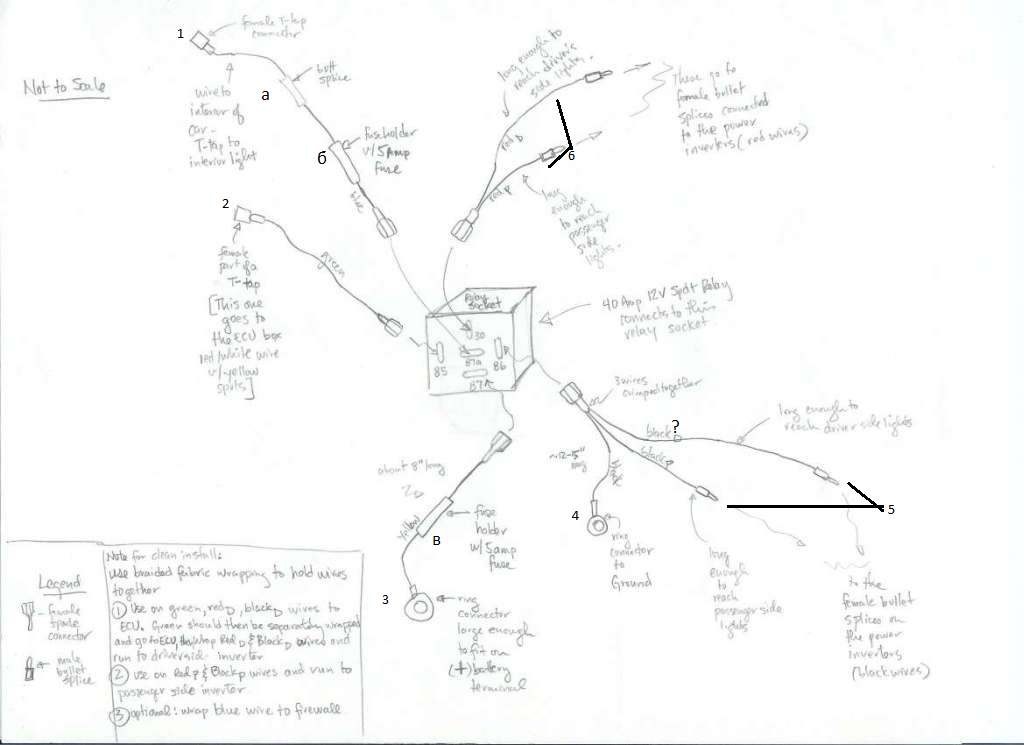 1
female T-tap
connector
Not to Scale
wire to
interior of
car -
T-tap to
interior light
butt
splice
a
fuseholder
w/ 5 Amp
fuse
б
blue
long enough to
reach driver's
side lights.
red D
red P
6
long
enough
to reach
passenger
side
lights.
These go to
female bullet
splices connected
to the power
inverters (red wires)
2
female
part of a
T-tap
[This one
goes to
the ECU box
red/white wire
w/yellow
spots]
green
Relay
socket
30
87a
85
86
87
40 Amp 12V Spdt Relay
connects to this
relay socket
3 wires
crimped together
black D
?
black P
long enough to
reach driver side lights
5
long
enough
to
reach
passenger side
lights
to the
female bullet
splices on
the power
inverters
(black wires)
black
4
ring
connector
to
Ground
about 8" long
yellow
B
fuse
holder
w/ 5 amp
fuse
3
ring
connector
large enough
to fit on
(+) battery
terminal
Legend
- female
spade
connector
- male
bullet
splice
Note for clean install:
use braided fabric wrapping to hold wires
together
① Use on green, red D, black D wires to
ECU. Green should then be separately wrapped
and go to ECU, then wrap Red D & Black D wires and
run to driverside inverter
② use on Red P & Black P wires and run to
passenger side inverter
③ optional: wrap blue wire to firewall